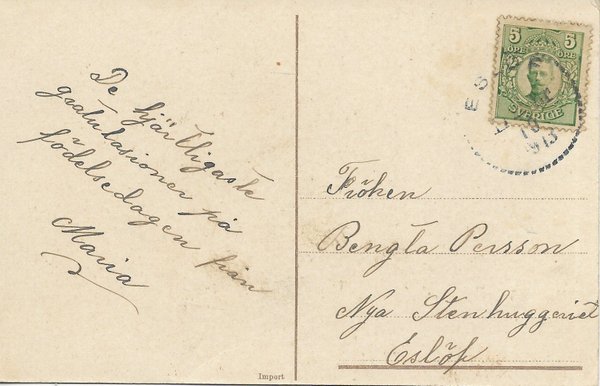 De hjärtligaste
gratulasioner på
födelsedagen från
Maria
Import
5 5
ÖRE ÖRE
SVERIGE
ES
13
Fröken
Bengta Persson
Nya Stenhuggeriet
Eslöf